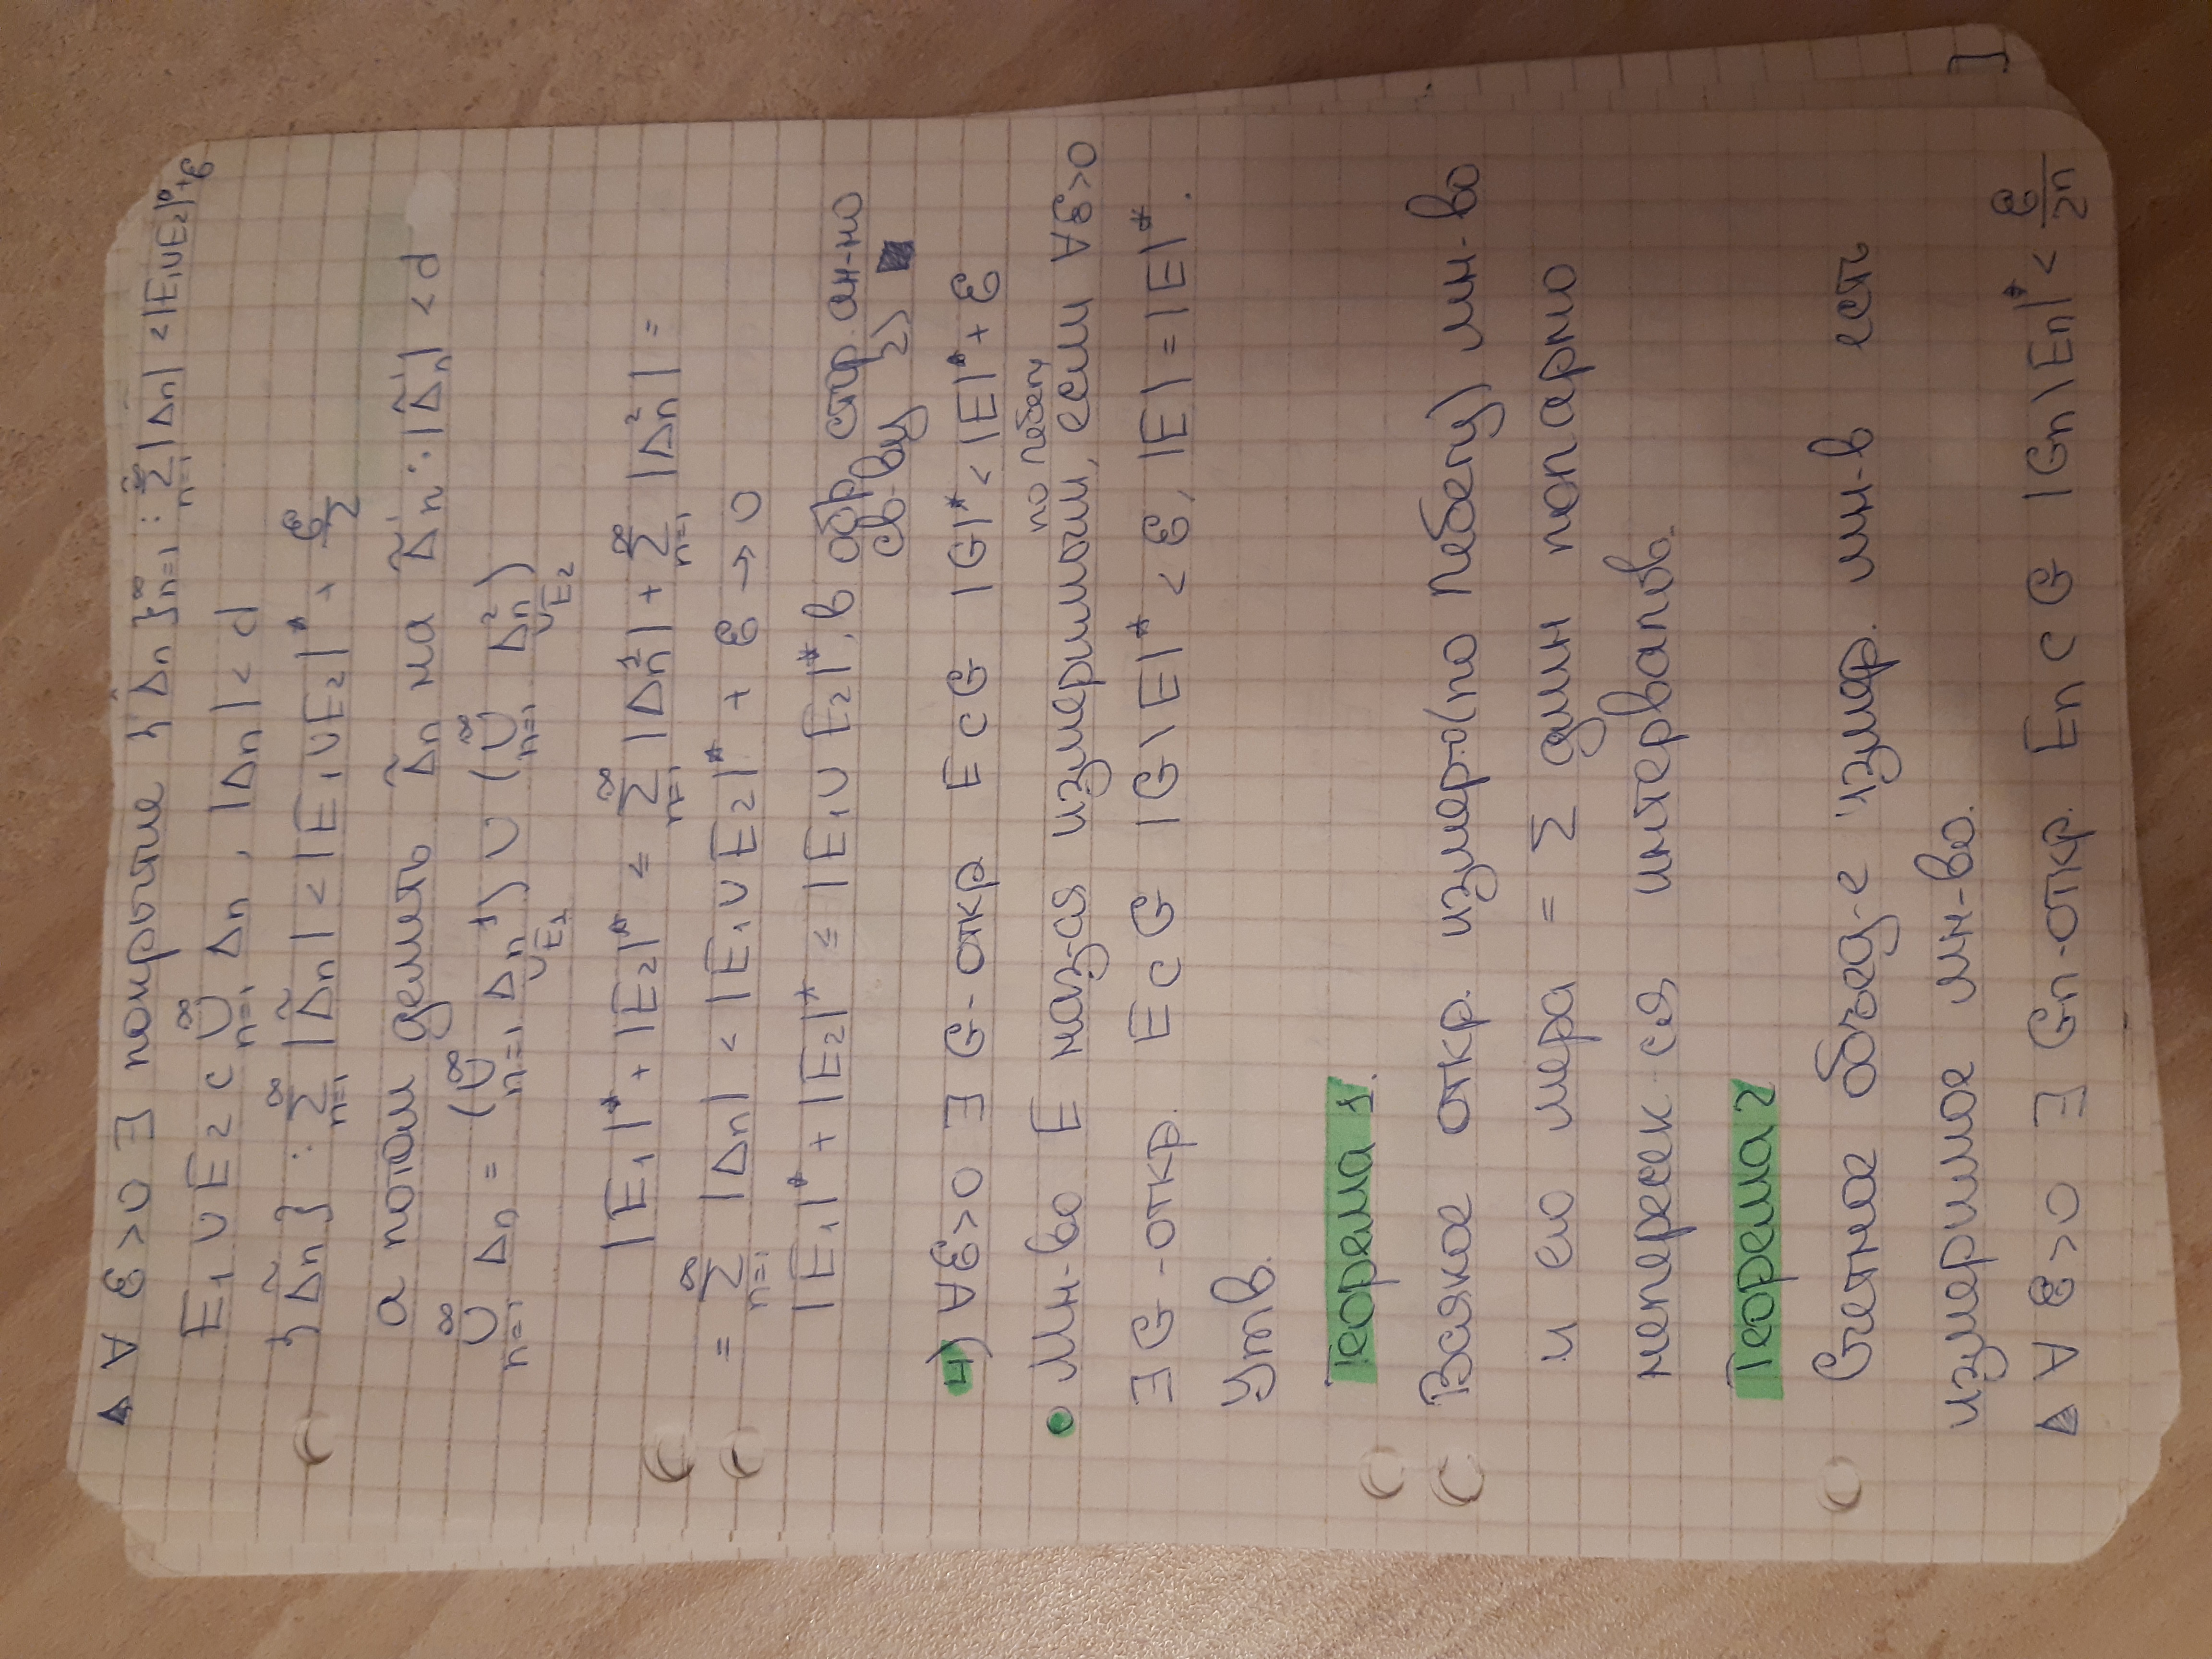 ▲ ∀ ε>0 ∃ покрытие {Δn}ⁿ⁼¹^∞ : ∑ₙ₌₁^∞ |Δn| < |E₁∪E₂|*+ε
E₁ ∪ E₂ ⊂ ∪ₙ₌₁^∞ Δn , |Δn| < d
{Δ̃n} : ∑ₙ₌₁^∞ |Δ̃n| < |E₁∪E₂|* + ε/2
а потом делить Δ̃n на Δ̃'n : |Δ̃'n| < d
∪ₙ₌₁^∞ Δn = (∪ₙ₌₁^∞ Δn¹) ∪ (∪ₙ₌₁^∞ Δn²)
∪E₁ ∪E₂
|E₁|* + |E₂|* ≤ ∑ₙ₌₁^∞ |Δn¹| + ∑ₙ₌₁^∞ |Δn²| =
= ∑ₙ₌₁^∞ |Δn| < |E₁∪E₂|* + ε → 0
|E₁|* + |E₂|* ≤ |E₁∪E₂|*, в обр. стор. ан-но
св-ву 2) ■
4) ∀ε>0 ∃ G-откр E⊂G |G|* < |E|* + ε
по Лебегу
• Мн-во E наз-ся измеримым, если ∀ε>0
∃ G-откр. E⊂G |G\E|* < ε, |E| = |E|*.
Утв.
Теорема 1.
Всякое откр. измер-о(по Лебегу) мн-во
и его мера = ∑ длин попарно
непересек-ся интервалов.
Теорема 2
Счетное объед-е измер. мн-в есть
измеримое мн-во.
▲ ∀ ε>0 ∃ Gn-откр. En⊂G |Gn\En|* < ε/2n